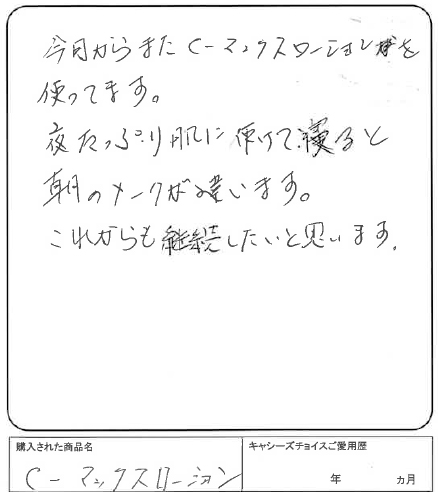 今月からまたC-マックスローションを
使ってます。
夜たっぷり肌に使けて寝ると
朝のメークが違います。
これからも継続したいと思います。
購入された商品名
C-マックスローション
キャシーズチョイスご愛用歴
年 ヵ月